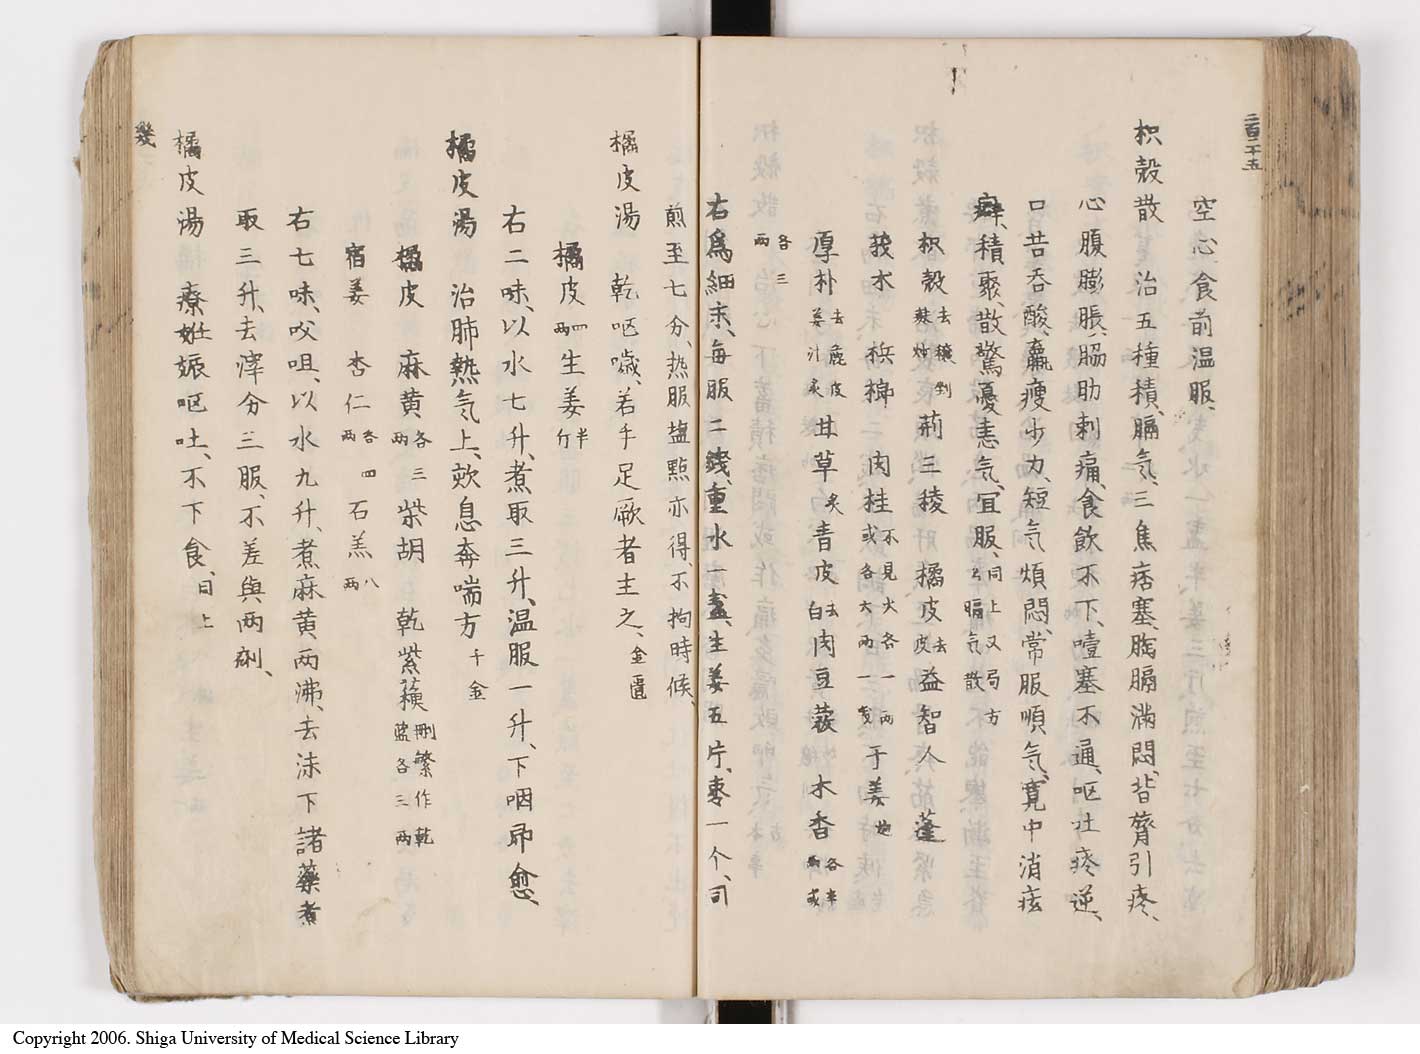 二百二十五
空心食前温服、
枳殻散　治五種積、膈気、三焦痞塞、胸膈満悶、背膂引疼、
心腹膨脹、脇肋刺痛、食飲不下、噎塞不通、呕吐痰逆、
口苦吞酸、羸瘦少力、短気煩悶、常服順気、寛中消痃
癖、積聚、散驚憂恚気、冝服、同上又局方 ム膈気散
枳殻去穰剉 麸炒 荊三稜　橘皮去皮 益智人　蓬
莪朮　梹榔　肉桂不見火各一両 或各六両一 于姜炮
厚朴去麁皮 姜汁炙 甘草炙 青皮去白 肉豆蔲　木香各半 両或
各三両
右爲細末、毎服二錢、重水一盞、生姜五片、棗一个、同
煎至七分、热服盐點亦得、不拘時候、
橘皮湯　乾呕噦、若手足厥者主之、金匱
橘皮四両 生姜半斤
右二味、以水七升、煮取三升、温服一升、下咽即愈、
橘皮湯　治肺熱気上、欬息奔喘方　千金
橘皮　麻黄各三両 柴胡　乾紫蘓刪繁作乾 藍各三両
宿姜　杏仁各四両 石羔八両
右七味、㕮咀、以水九升、煮麻黄両沸、去沫下諸藥煮
取三升、去滓分三服、不差與两剤、
橘皮湯　療妊娠呕吐、不下食、同上
幾
Copyright 2006. Shiga University of Medical Science Library